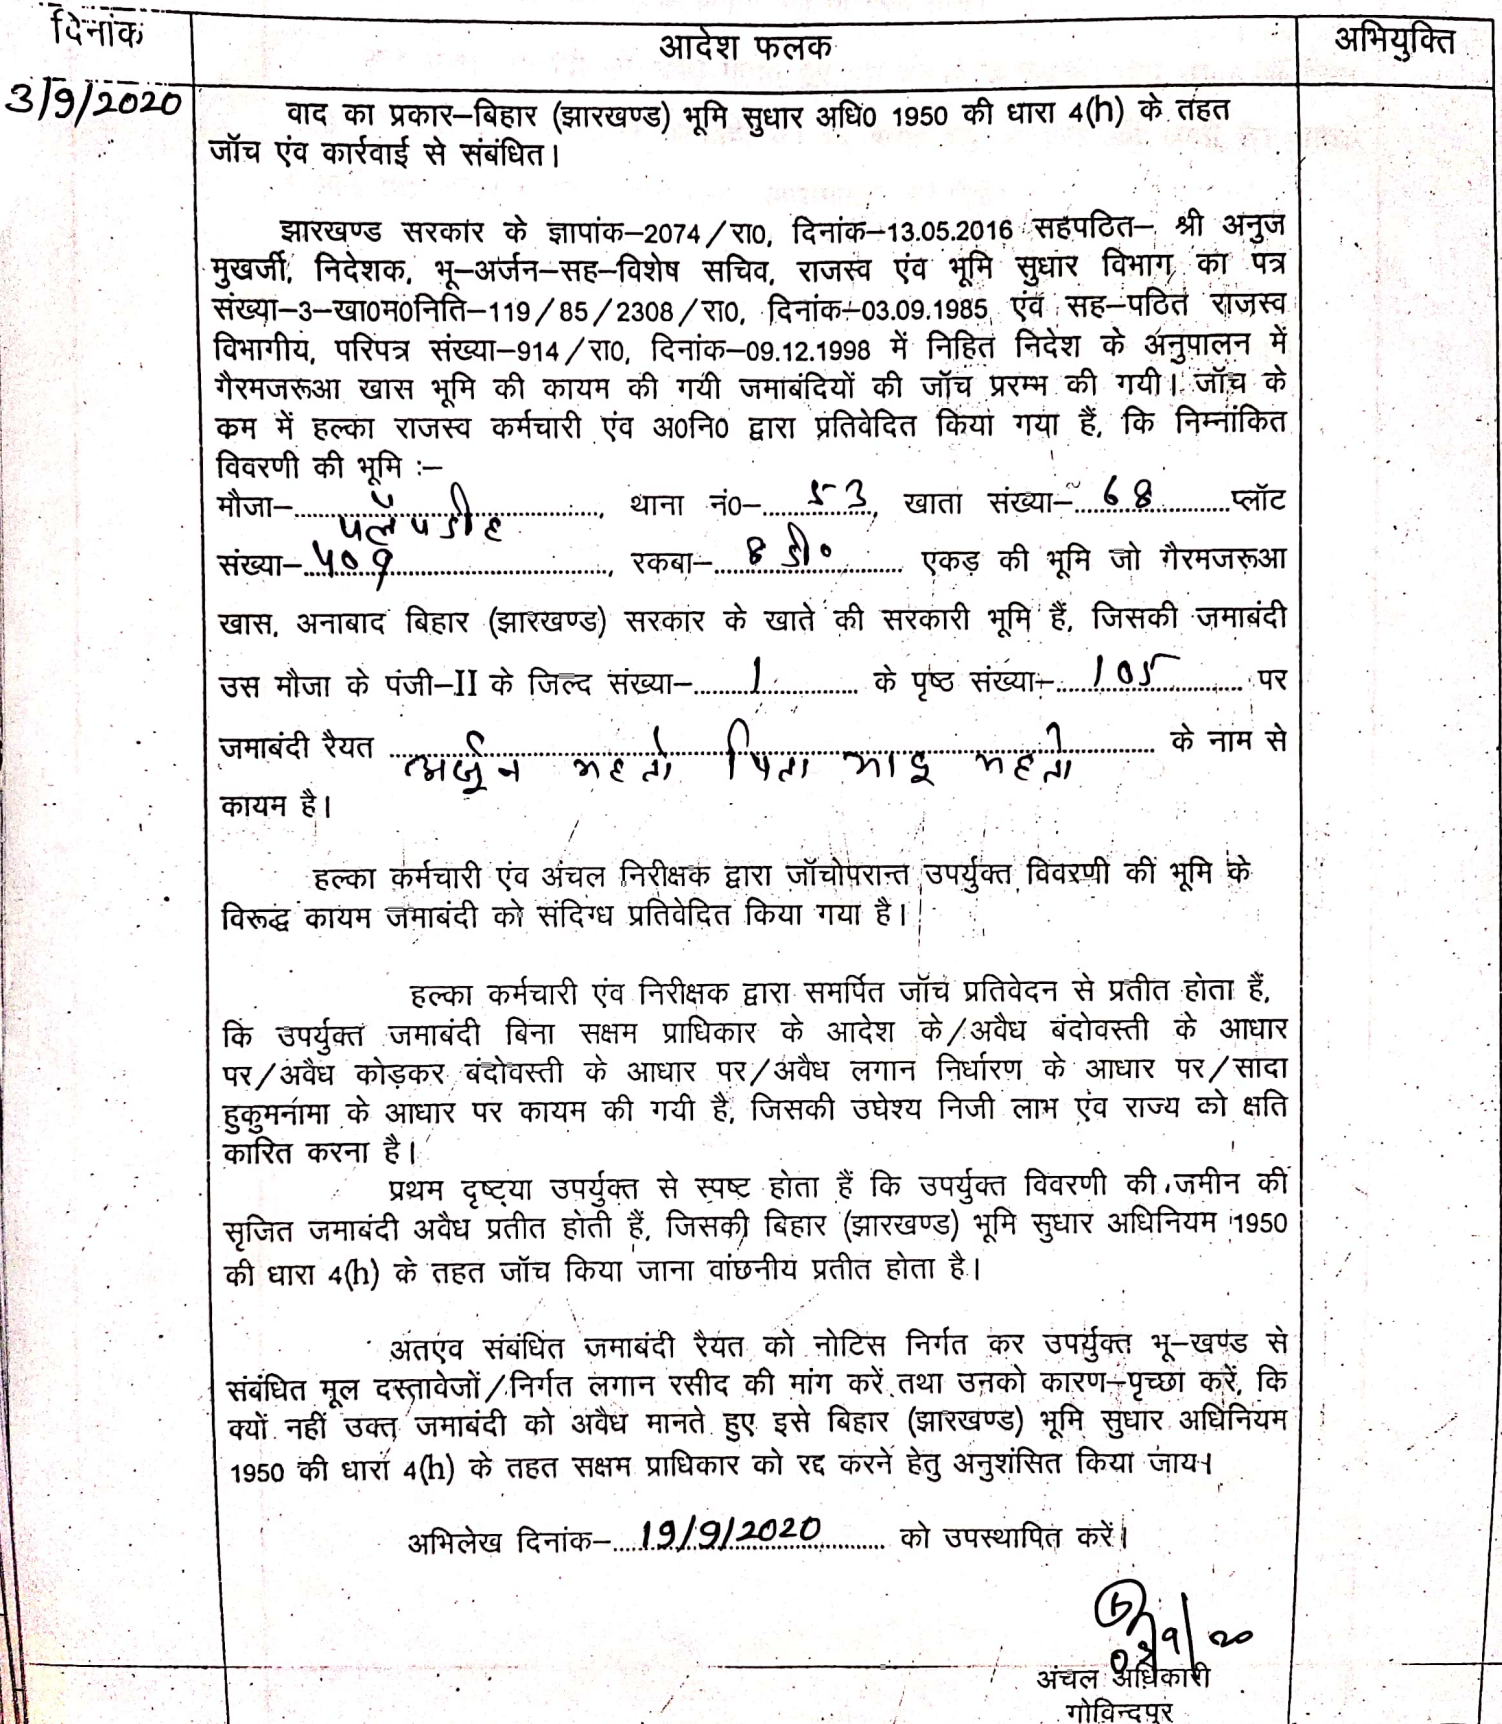 दिनांक आदेश फलक अभियुक्ति
3/9/2020
वाद का प्रकार–बिहार (झारखण्ड) भूमि सुधार अधि0 1950 की धारा 4(h) के तहत
जॉच एंव कार्रवाई से संबंधित।
झारखण्ड सरकार के ज्ञापांक–2074/रा0, दिनांक–13.05.2016 सहपठित– श्री अनुज
मुखर्जी, निदेशक, भू–अर्जन–सह–विशेष सचिव, राजस्व एंव भूमि सुधार विभाग, का पत्र
संख्या–3–खा0म0निति–119/85/2308/रा0, दिनांक–03.09.1985, एंव सह–पठित राजस्व
विभागीय, परिपत्र संख्या–914/रा0, दिनांक–09.12.1998 में निहित निदेश के अनुपालन में
गैरमजरूआ खास भूमि की कायम की गयी जमाबंदियों की जॉच प्ररम्भ की गयी। जॉच के
कम में हल्का राजस्व कर्मचारी एंव अ0नि0 द्वारा प्रतिवेदित किया गया हैं, कि निम्नांकित
विवरणी की भूमि :–
मौजा–.............., थाना नं0–....53...., खाता संख्या–....68....प्लॉट
संख्या–....409...., रकबा–....8 डी०.... एकड़ की भूमि जो गैरमजरूआ
खास, अनाबाद बिहार (झारखण्ड) सरकार के खाते की सरकारी भूमि हैं, जिसकी जमाबंदी
उस मौजा के पंजी–II के जिल्द संख्या–....1.... के पृष्ठ संख्या–....105.... पर
जमाबंदी रैयत ....अर्जुन महतो पिता माडू महतो.... के नाम से
कायम है।
हल्का कर्मचारी एंव अंचल निरीक्षक द्वारा जॉचोपरान्त उपर्युक्त विवरणी की भूमि के
विरूद्ध कायम जमाबंदी को संदिग्ध प्रतिवेदित किया गया है।
हल्का कर्मचारी एंव निरीक्षक द्वारा समर्पित जॉच प्रतिवेदन से प्रतीत होता हैं,
कि उपर्युक्त जमाबंदी बिना सक्षम प्राधिकार के आदेश के/अवैध बंदोवस्ती के आधार
पर/अवैध कोड़कर बंदोवस्ती के आधार पर/अवैध लगान निर्धारण के आधार पर/सादा
हुकुमनामा के आधार पर कायम की गयी है, जिसकी उघेश्य निजी लाभ एंव राज्य को क्षति
कारित करना है।
प्रथम दृष्ट्या उपर्युक्त से स्पष्ट होता हैं कि उपर्युक्त विवरणी की जमीन की
सृजित जमाबंदी अवैध प्रतीत होती हैं, जिसकी बिहार (झारखण्ड) भूमि सुधार अधिनियम 1950
की धारा 4(h) के तहत जॉच किया जाना वांछनीय प्रतीत होता है।
अतएव संबंधित जमाबंदी रैयत को नोटिस निर्गत कर उपर्युक्त भू–खण्ड से
संबंधित मूल दस्तावेजों/निर्गत लगान रसीद की मांग करें तथा उनको कारण–पृच्छा करें, कि
क्यों नहीं उक्त जमाबंदी को अवैध मानते हुए इसे बिहार (झारखण्ड) भूमि सुधार अधिनियम
1950 की धारा 4(h) के तहत सक्षम प्राधिकार को रद्द करने हेतु अनुशंसित किया जाय।
अभिलेख दिनांक–....19/9/2020.... को उपस्थापित करें।
अंचल अधिकारी
गोविन्दपुर